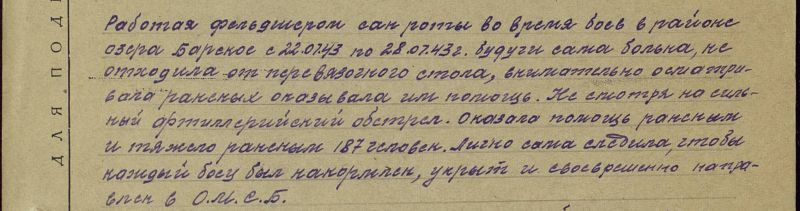 Работая фельдшером сан роты во время боев в районе
озера Барское с 22.07.43 по 28.07.43г. будучи сама больна, не
отходила от перевязочного стола, внимательно осматри-
вала раненых оказывала им помощь. Не смотря на силь-
ный артиллерийский обстрел. Оказала помощь раненым
и тяжело раненым 187 человек. Лично сама следила, чтобы
каждый боец был накормлен, укрыт и своевременно направ-
влен в О.М.С.Б.
ДЛЯ ПОД